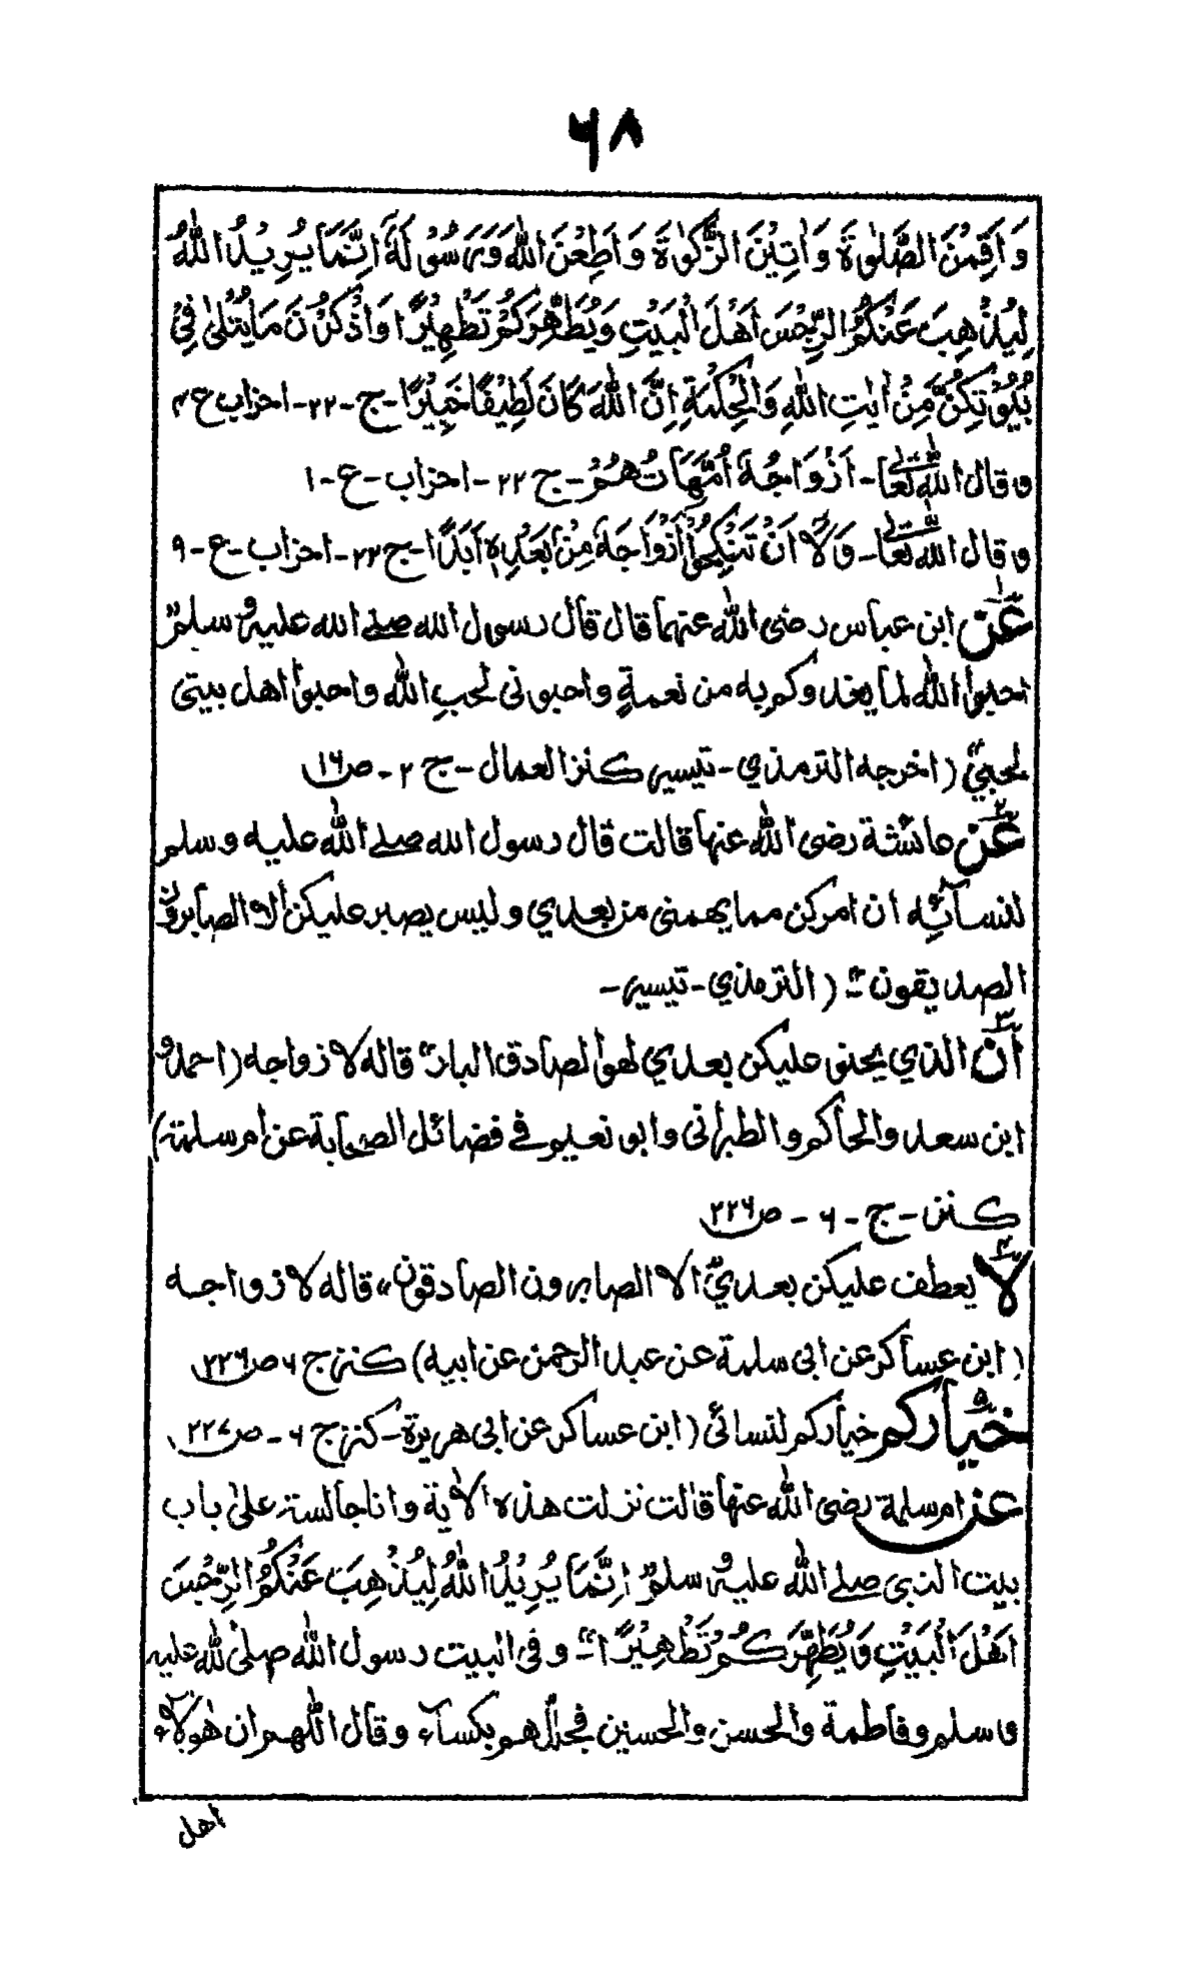 ۶۸
وَاَقِمْنَ الصَّلٰوةَ وَاٰتِيْنَ الزَّكٰوةَ وَاَطِعْنَ اللّٰهَ وَرَسُوْلَهٗ اِنَّمَا يُرِيْدُ اللّٰهُ
لِيُذْهِبَ عَنْكُمُ الرِّجْسَ اَهْلَ الْبَيْتِ وَيُطَهِّرَكُمْ تَطْهِيْرًا وَاذْكُرْنَ مَا يُتْلىٰ فِيْ
بُيُوْتِكُنَّ مِنْ اٰيٰتِ اللّٰهِ وَالْحِكْمَةِ اِنَّ اللّٰهَ كَانَ لَطِيْفًا خَبِيْرًا - ج - ۲۲ - احزاب ع ۴
وقال اللّٰه تعالٰى - اَزْوَاجُهٗ اُمَّهَاتُهُمْ - ج ۲۲ - احزاب - ع - ۱
وقال اللّٰه تعالٰى - وَلَا اَنْ تَنْكِحُوْا اَزْوَاجَهٗ مِنْ بَعْدِهٖ اَبَدًا - ج ۲۲ - احزاب - ع - ۹
۱ عن ابن عباس رضى اللّٰه عنهما قال قال رسول الله صلے الله عليه وسلم
احبوا اللّٰه لما يغدوكم به من نعمةٍ واحبونى لحبِ اللّٰه واحبوا اهل بيتى
لحبيّ (اخرجه الترمذي - تيسير كنز العمال - ج ۲ - ص ۱۶
۲ عن عائشة رضى اللّٰه عنها قالت قال رسول الله صلے اللّٰه عليه وسلم
لنسآئه ان امركن مما يهمنى من بعدي وليس يصبر عليكن الا الصابرون
الصديقون ؛ (الترمذي - تيسير -
۳ ان الذي يحنو عليكن بعدي لهو الصادق البار ؛ قاله لازواجه (احمد و
ابن سعد والحاكم والطبرانى وابو نعيم فے فضائل الصحابة عن ام سلمة)
كنز - ج - ۶ - ص ۲۲۶
۴ لا يعطف عليكن بعديّ الا الصابرون الصادقون ،، قاله لازواجه
(ابن عساكر عن ابى سلمة عن عبد الرحمن عن ابيه) كنز ج ۶ ص ۲۲۶
۵ خياركم خياركم لنسائى (ابن عساكر عن ابى هريرة - كنز ج ۶ - ص ۲۲۷
عن ام سلمة رضى اللّٰه عنها قالت نزلت هذه الاٰية وانا جالسة علىٰ باب
بيت النبى صلے اللّٰه عليه وسلم اِنَّمَا يُرِيْدُ اللّٰهُ لِيُذْهِبَ عَنْكُمُ الرِّجْسَ
اَهْلَ الْبَيْتِ وَيُطَهِّرَكُمْ تَطْهِيْرًا ؛ وفى البيت رسول اللّٰه صلى لله عليه
وسلم وفاطمة والحسن والحسين فجللهم بكسآء وقال اللّٰهم ان هٰولآء
اهل